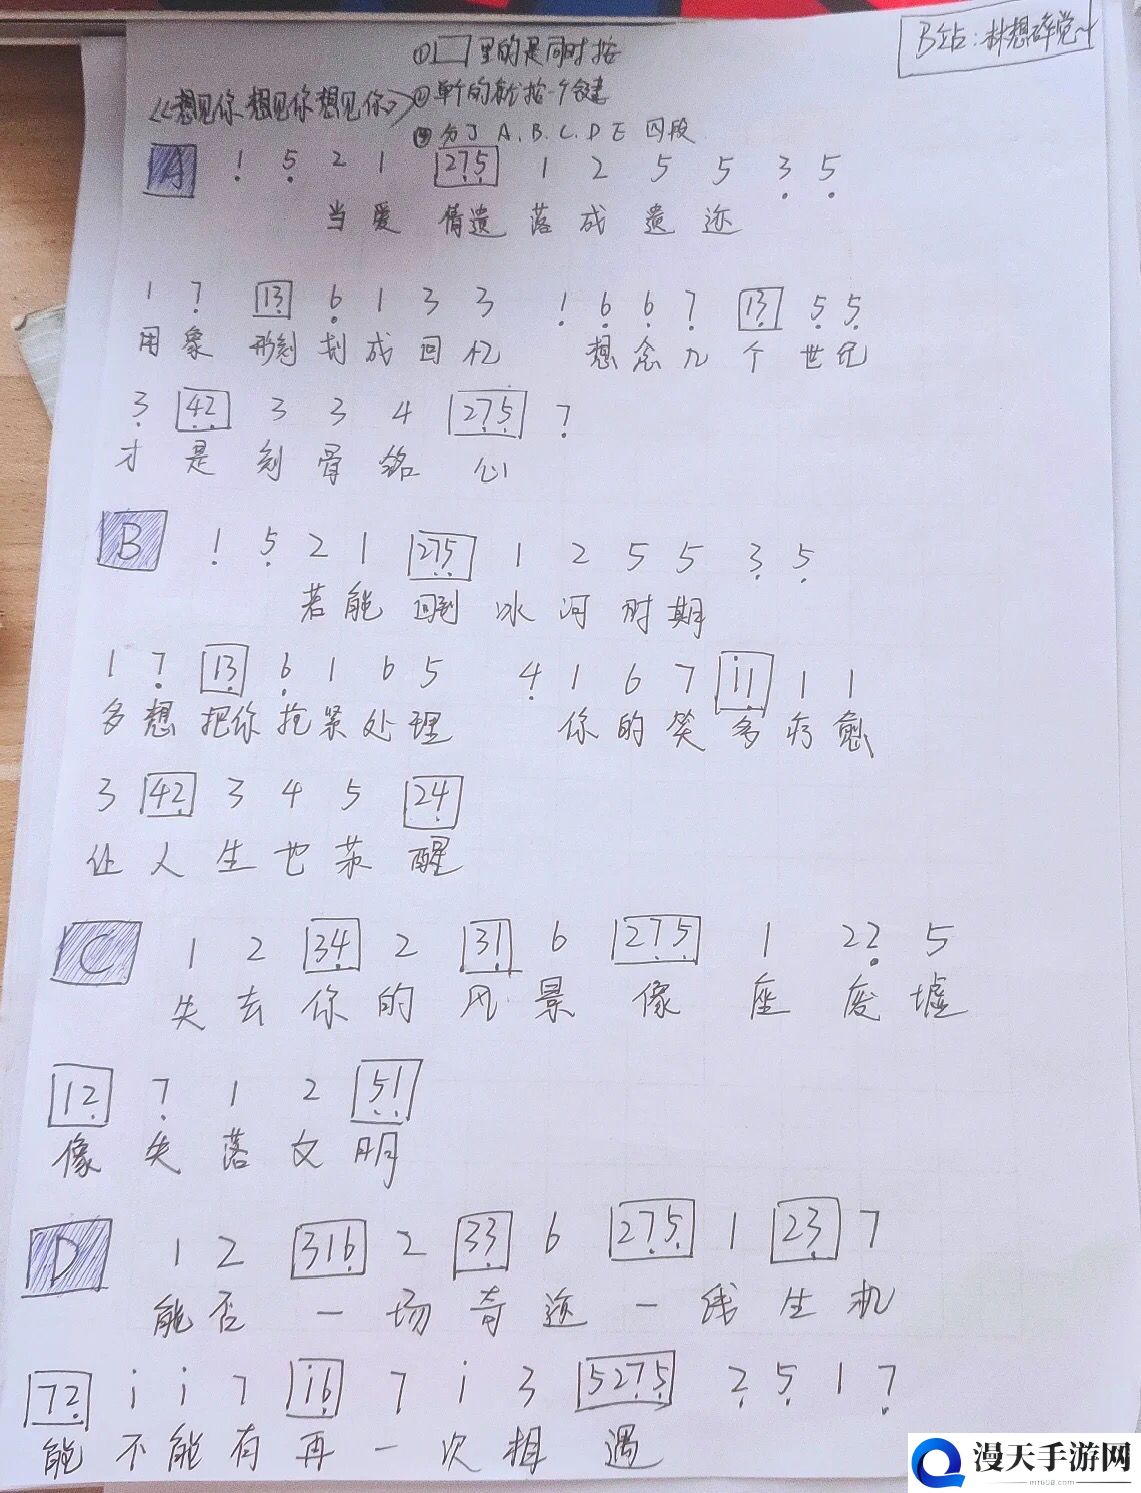 B站:林想碎觉~
①□里的是同时按
《想见你想见你想见你》②单个的就按一个键
③分了A.B.C.D E四段
A 1̣ 5̣ 2 1 [27̣5̣] 1 2 5 5 3̣ 5̣
当爱情遗落成遗迹
1 7̣ [13̣] 6̣ 1 3 3 1̣ 6̣ 6̣ 7̣ [13̣] 5̣ 5̣
用象形刻划成回忆 想念几个世纪
3̣ [4̣2̣] 3 3 4 [27̣5̣] 7̣
才是刻骨铭心
B 1̣ 5̣ 2 1 [27̣5̣] 1 2 5 5 3̣ 5̣
若能回到冰河时期
1 7̣ [13̣] 6̣ 1 6 5 4̣ 1 6 7 [i1̣] 1 1
多想把你抱紧处理 你的笑多疗愈
3 [42̣] 3 4 5 [24̣]
让人生也苏醒
C 1 2 [34̣] 2 [31̣] 6 [27̣5̣] 1 22̣ 5
失去你的风景像座废墟
[12̣] 7̣ 1 2 [5̣1̣]
像失落文明
D 1 2 [316̣] 2 [33̣] 6 [27̣5̣] 1 [23̣] 7
能否一场奇迹一线生机
[72̣] i i 7 [i6̣] 7 i 3 [52̣7̣5̣] 2̣ 5̣ 1 7̣
能不能有再一次相遇
漫天手游网